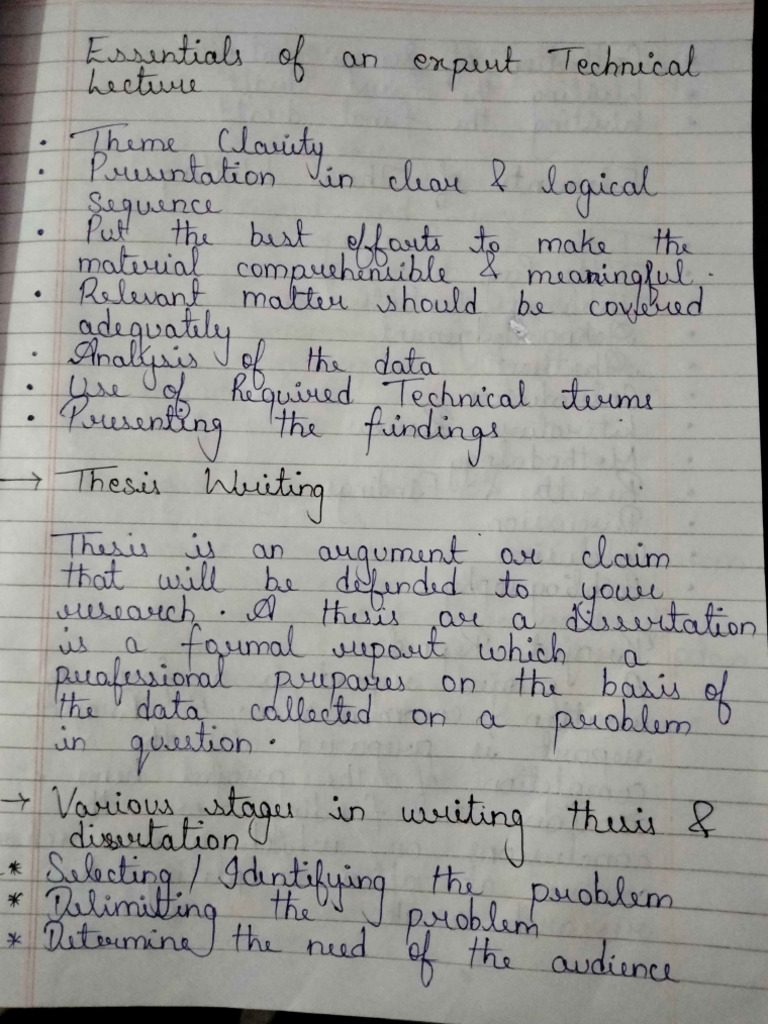 Essentials of an expert Technical
Lecture
• Theme Clarity
• Presentation in clear & logical
sequence
• Put the best efforts to make the
material comprehensible & meaningful.
• Relevant matter should be covered
adequately
• Analysis of the data
• Use of Required Technical terms
• Presenting the findings
→ Thesis Writing
Thesis is an argument or claim
that will be defended to your
research. A thesis or a dissertation
is a formal report which a
professional prepares on the basis of
the data collected on a problem
in question.
→ Various stages in writing thesis &
dissertation
* Selecting / Identifying the problem
* Delimitting the problem
* Determine the need of the audience